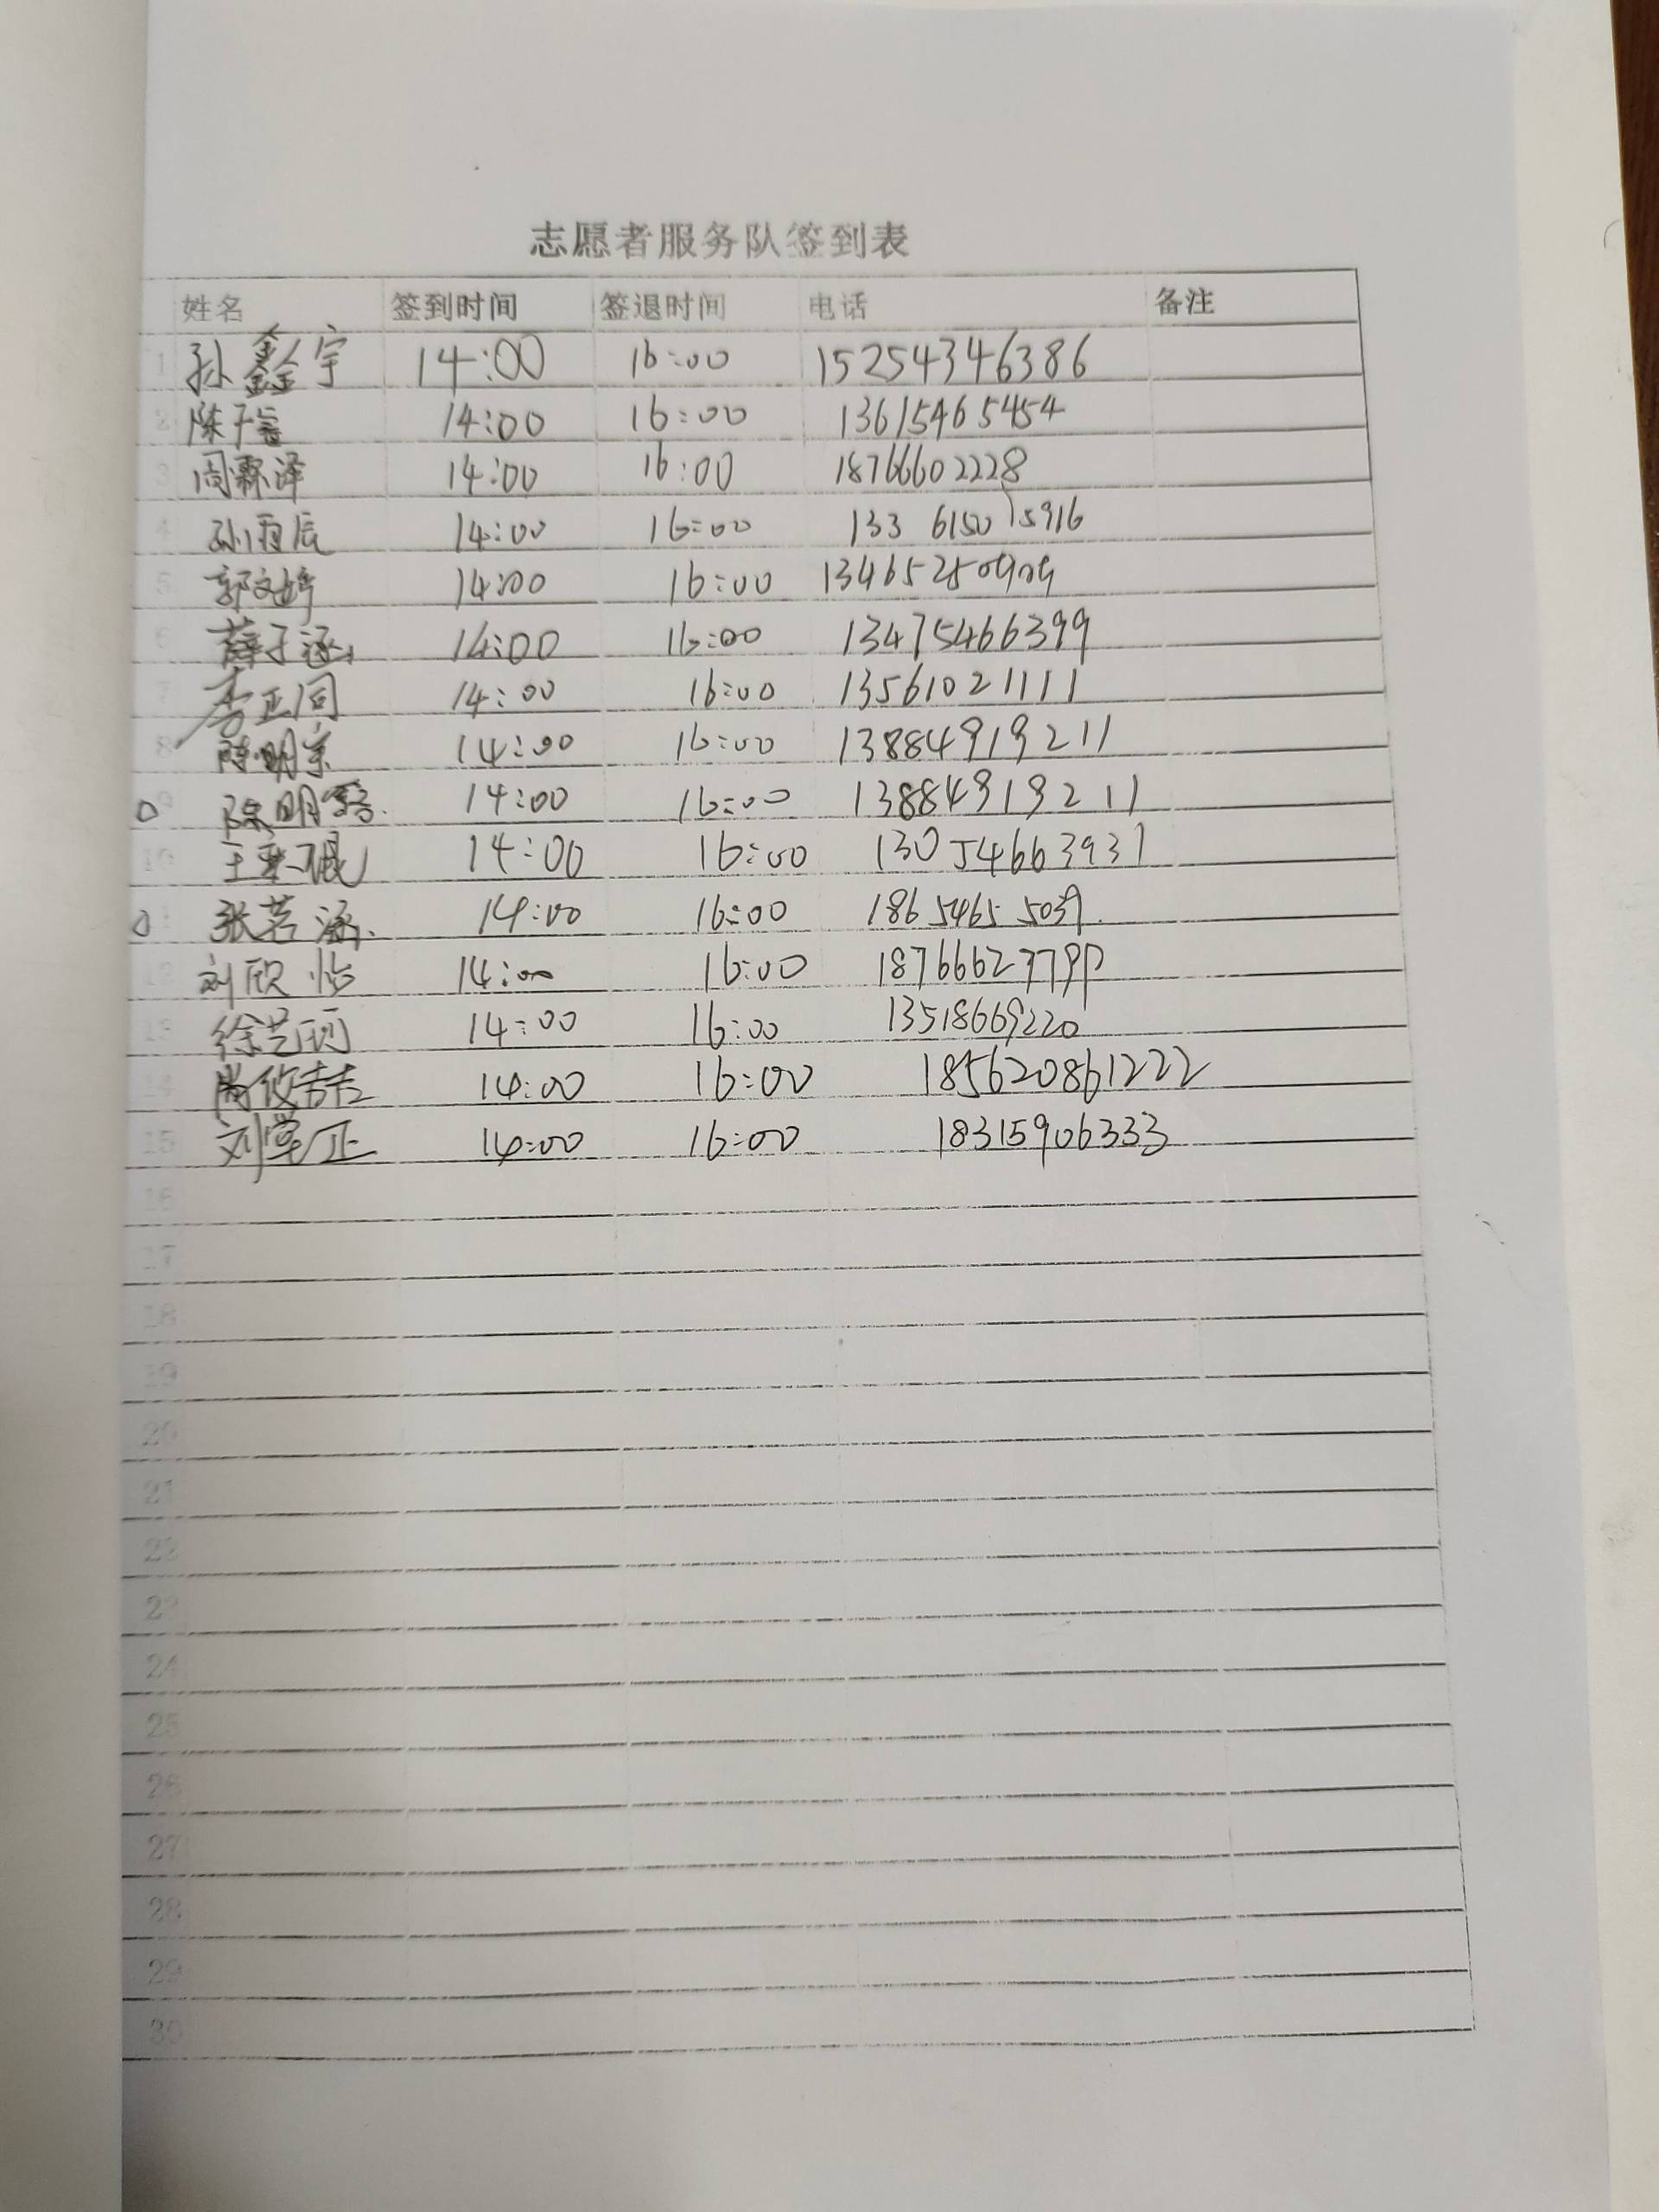 志愿者服务队签到表
姓名 签到时间 签退时间 电话 备注
1 孙鑫宇 14:00 16:00 15254346386
2 陈子睿 14:00 16:00 13615465454
3 周霖泽 14:00 16:00 18766602228
4 孙雨辰 14:00 16:00 133 6150 15916
5 郭文婷 14:00 16:00
6 薛子涵 14:00 16:00 13475466399
7 李正同 14:00 16:00 13561021111
8 陈明京 14:00 16:00 13884919211
9 陈明 14:00 16:00 13884919211
10 王 琨 14:00 16:00 13054663931
11 张茗涵 14:00 16:00
12 刘欣怡 14:00 16:00
13 徐艺珂 14:00 16:00 13518669220
14 14:00 16:00 185620861222
15 刘学正 14:00 16:00 18315906333
16
17
18
19
20
21
22
23
24
25
26
27
28
29
30